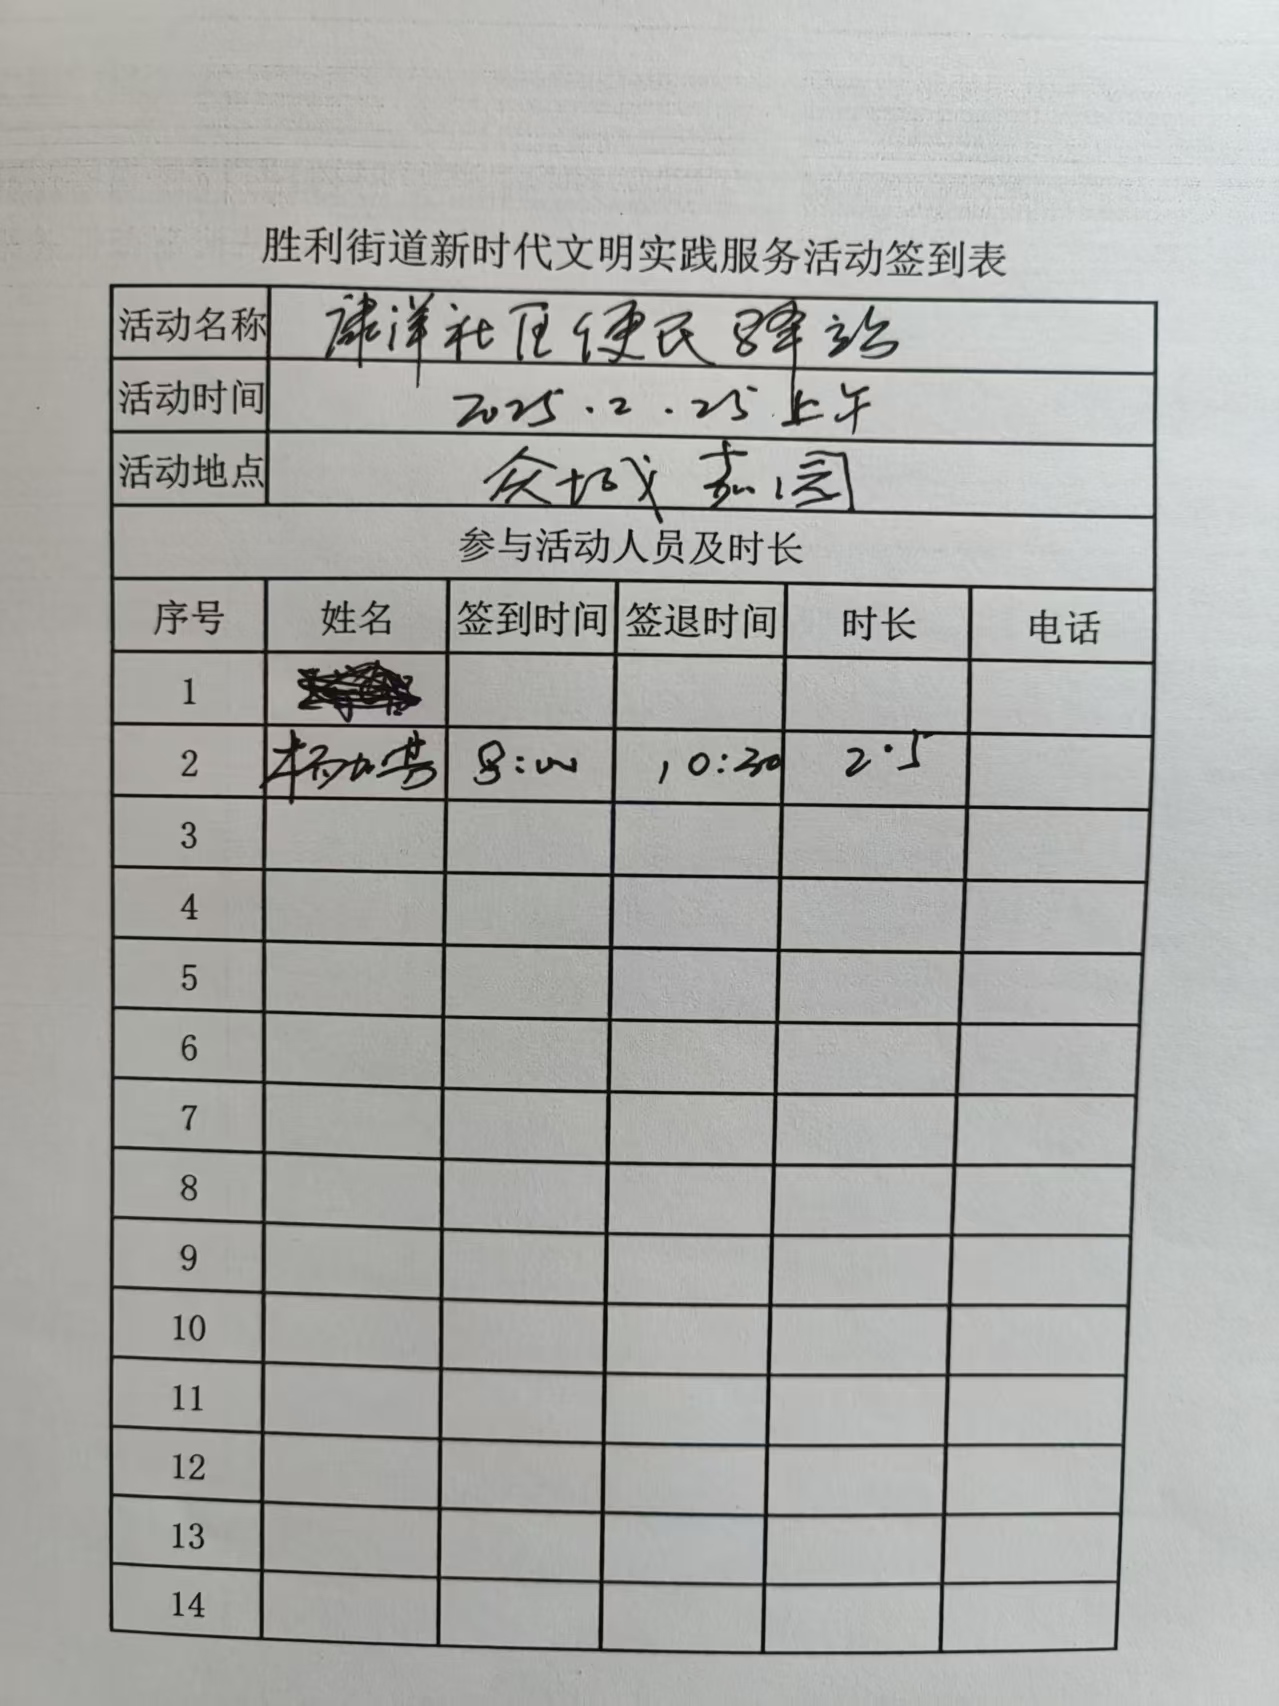 胜利街道新时代文明实践服务活动签到表
活动名称 康洋社区便民驿站
活动时间 2025.2.25上午
活动地点 众城嘉园
参与活动人员及时长
序号 姓名 签到时间 签退时间 时长 电话
1
2 8:00 10:30 2.5
3
4
5
6
7
8
9
10
11
12
13
14